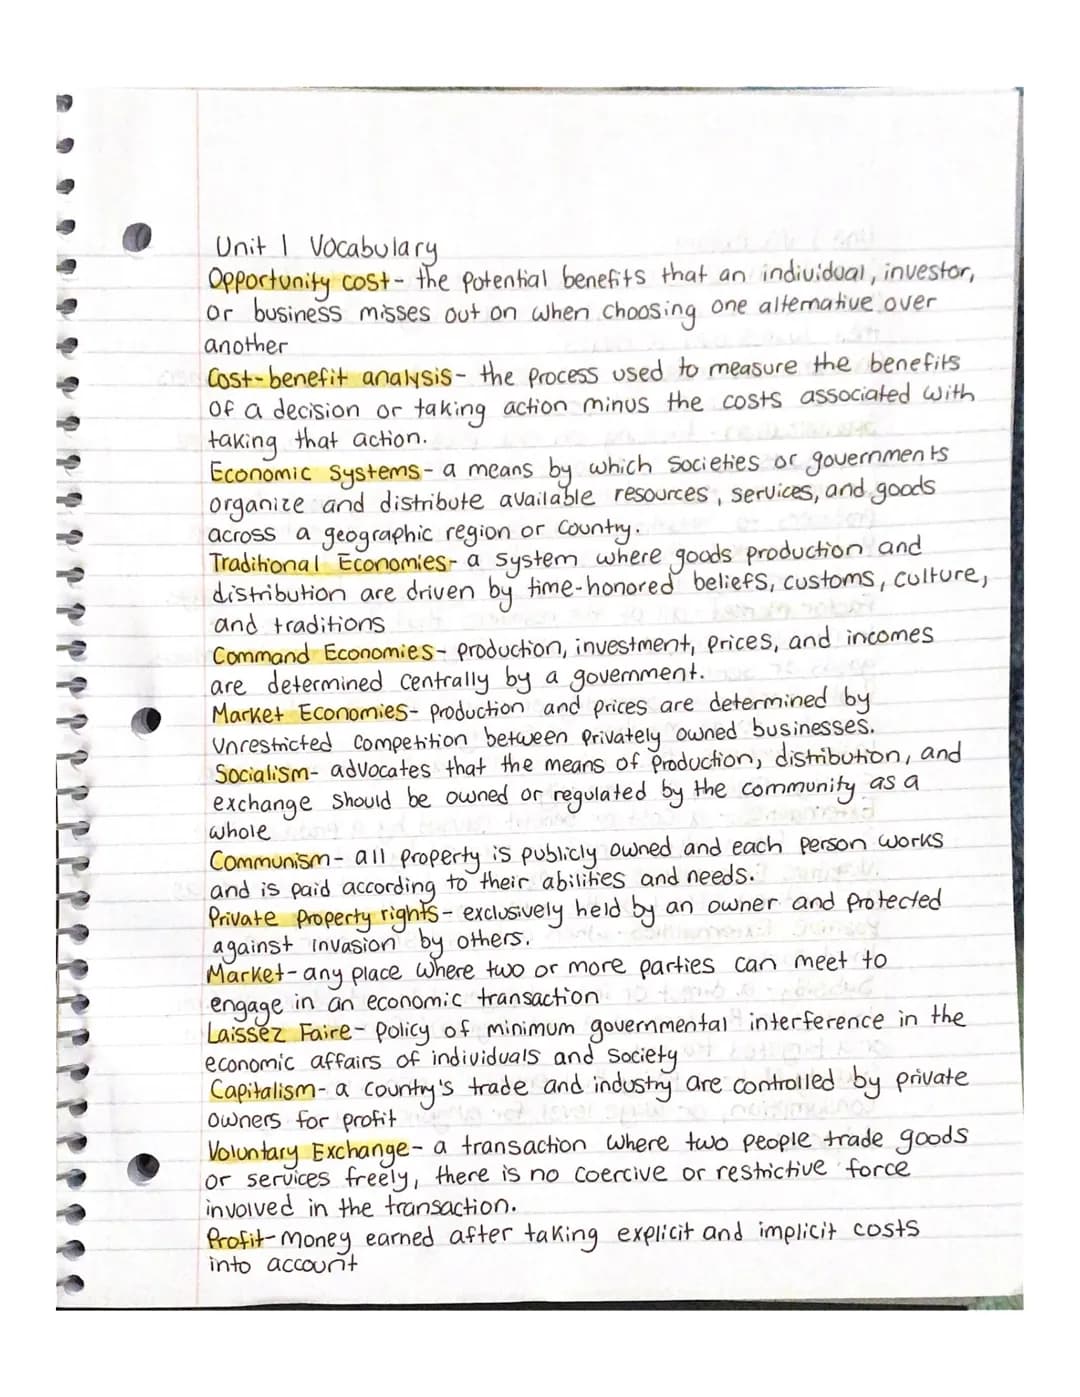 Unit 1 Vocabulary
Opportunity cost- the potential benefits that an individual, investor,
or business misses out on when choosing one alternative over
another
Cost-benefit analysis- the process used to measure the benefits
of a decision or taking action minus the costs associated with
taking that action.
Economic Systems- a means by which societies or governments
organize and distribute available resources, services, and goods
across a geographic region or country.
Traditional Economies- a system where goods production and
distribution are driven by time-honored beliefs, customs, culture,
and traditions
Command Economies- production, investment, prices, and incomes
are determined centrally by a government.
Market Economies- production and prices are determined by
unrestricted competition between privately owned businesses.
Socialism- advocates that the means of production, distribution, and
exchange should be owned or regulated by the community as a
whole
Communism- all property is publicly owned and each person works
and is paid according to their abilities and needs.
Private property rights- exclusively held by an owner and protected
against invasion by others.
Market- any place where two or more parties can meet to
engage in an economic transaction
Laissez Faire- policy of minimum governmental interference in the
economic affairs of individuals and society
Capitalism- a country's trade and industry are controlled by private
owners for profit
Voluntary Exchange- a transaction where two people trade goods
or services freely, there is no coercive or restrictive force
involved in the transaction.
Profit- money earned after taking explicit and implicit costs
into account